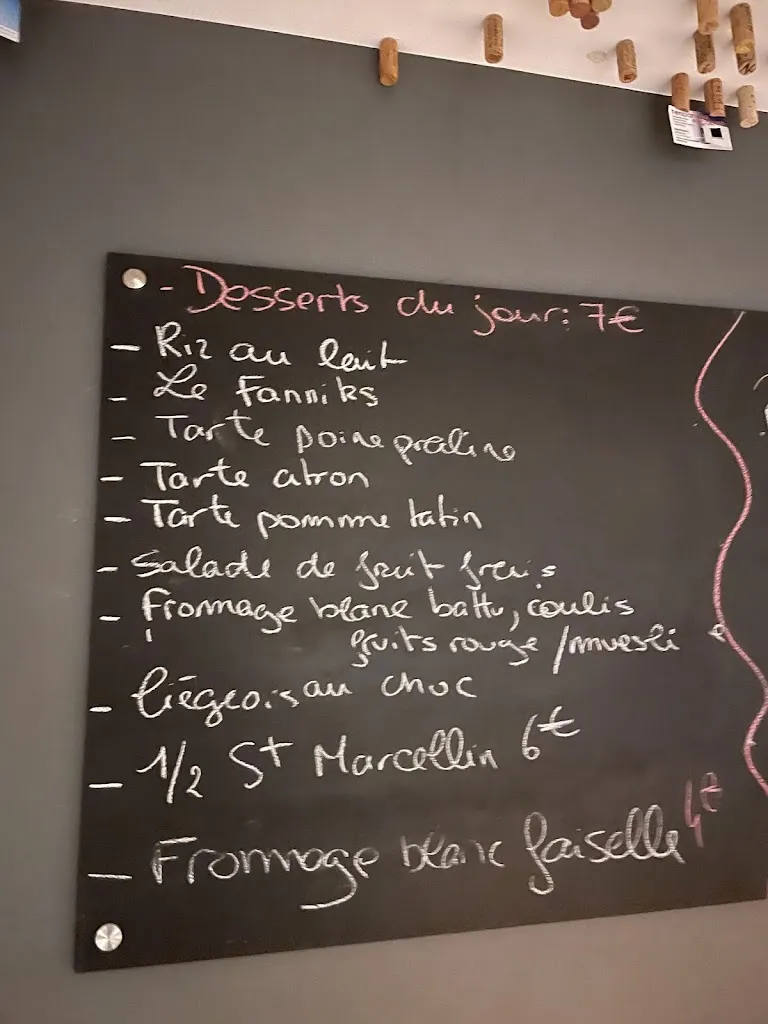 - Desserts du jour: 7€
- Riz au lait
- Le Fanniks
- Tarte poire praline
- Tarte citron
- Tarte pomme tatin
- Salade de fruit frais
- Fromage blanc battu, coulis
fruits rouge / muesli
- liégeois au choc
- 1/2 St Marcellin 6€
- Fromage blanc faiselle 4€